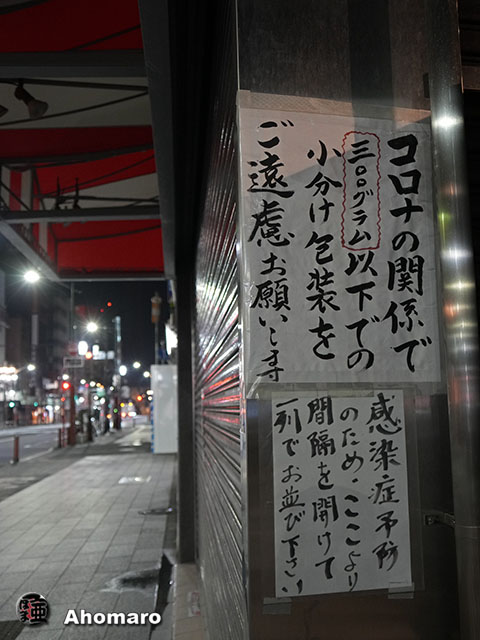 コロナの関係で
三〇〇グラム以下での
小分け包装を
ご遠慮お願いします
感染症予防
のため、ここより
間隔を開けて
一列でお並び下さい
Ahomaro